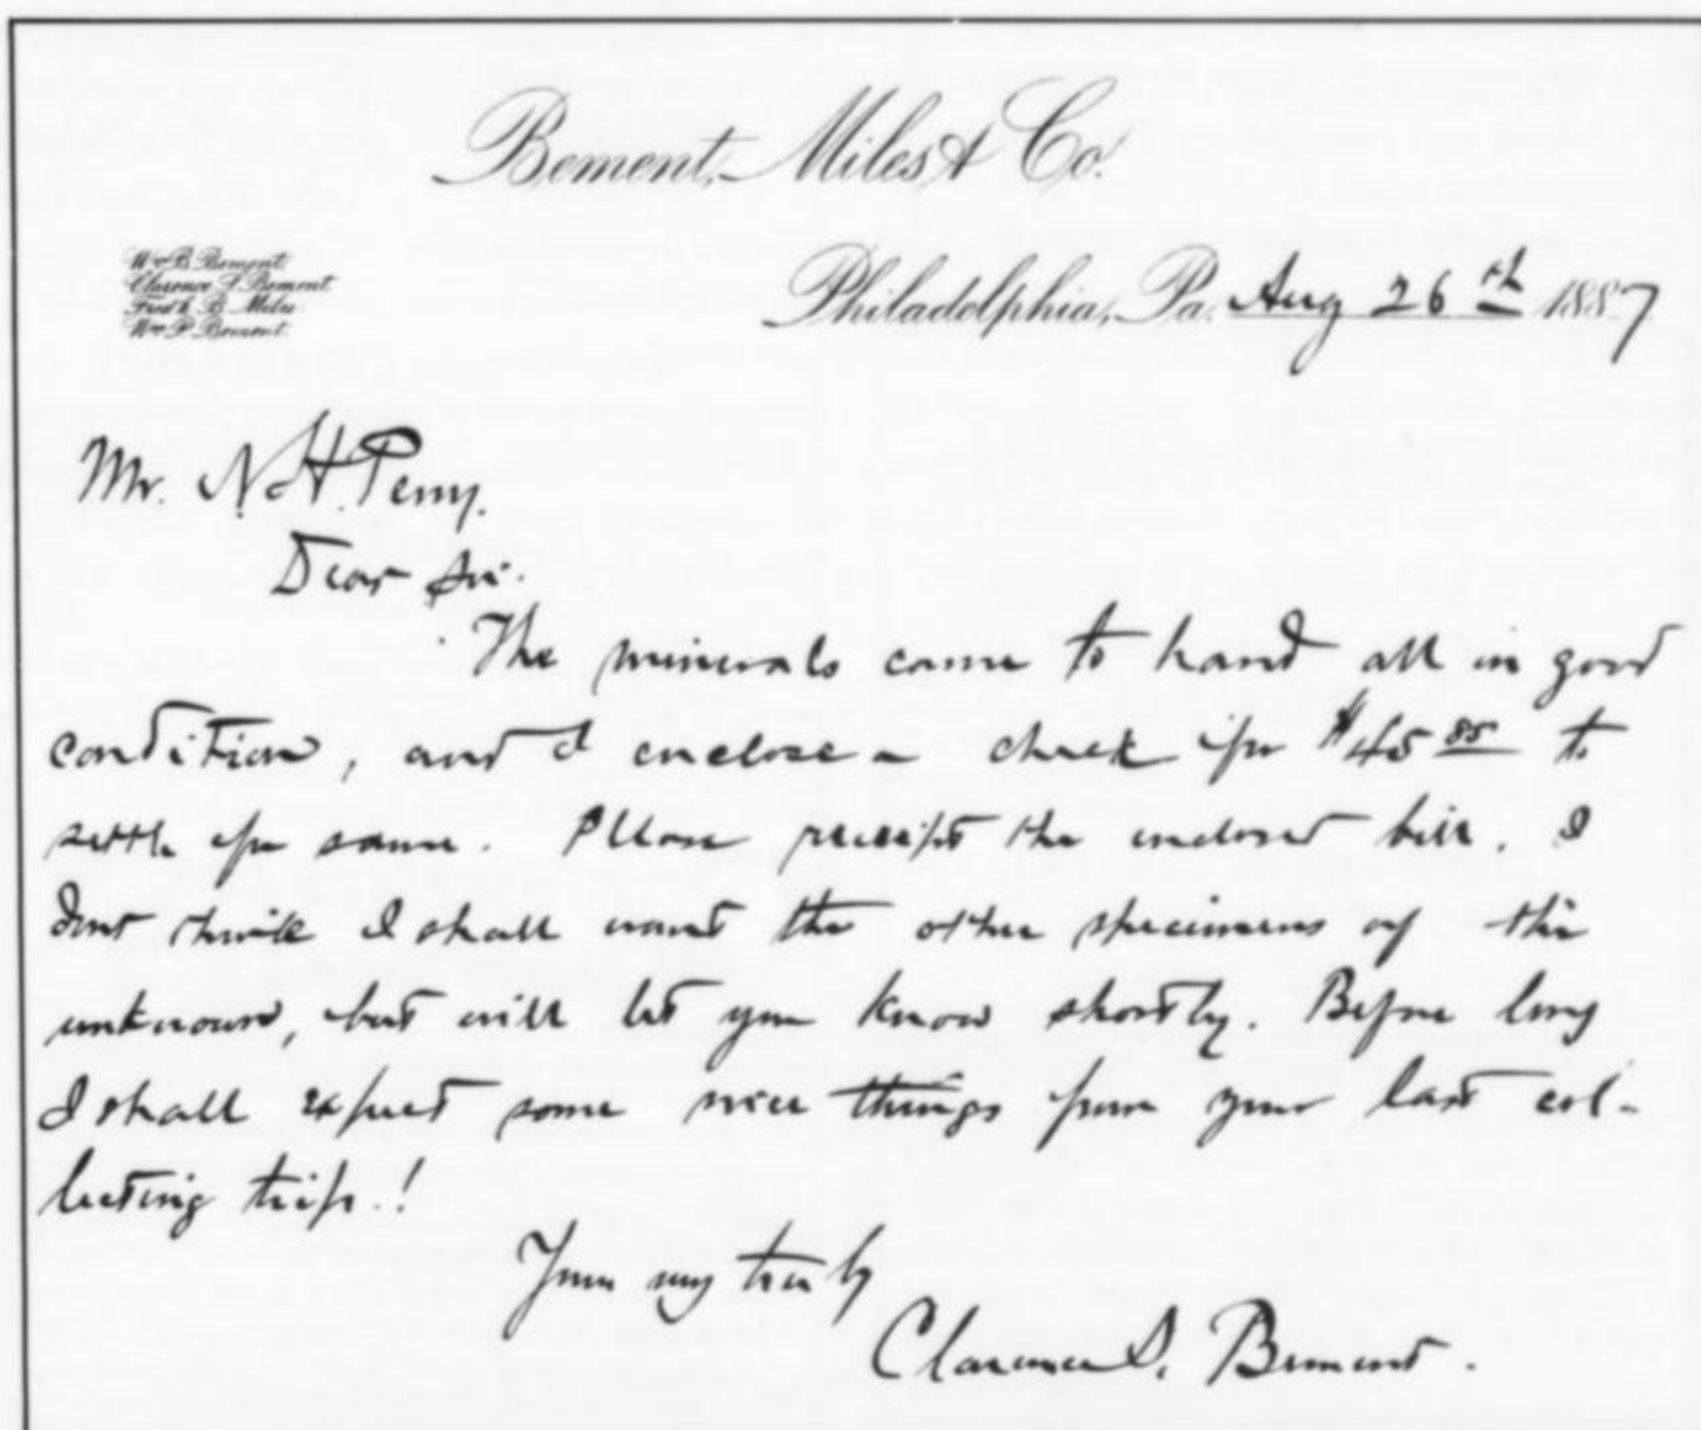 Bement, Miles & Co.
Wm B. Bement
Clarence S. Bement
Fred'k B. Miles
Wm P. Bement
Philadelphia, Pa. Aug 26th 1887
Mr. N. H. Perry.
Dear Sir.
The minerals came to hand all in good
condition, and I enclose a check for $45 85 to
settle for same. Please receipt the enclosed bill. I
dont think I shall want the other specimens of the
unknown, but will let you know shortly. Before long
I shall expect some nice things from your last col-
lecting trip.!
Yours very truly
Clarence S. Bement.